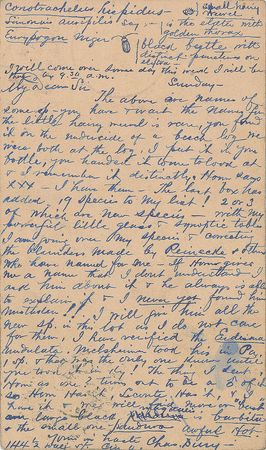 Constrachelus Erepidus — small hairy
Weevil
Simonius auropilis Say — is the elater with
golden thorax
Eurypogon Niger — black beetle with
distinct punctures on
elytra
I will come over some day this week I will be
by 9.30 a.m. Sunday —
My Dear Sir
The above are names of
some sp — you have & want the name for
the little hairy weevil is easy, you found
it on the underside of a beach log, we
were both at the log, I put it in your
bottle, you handed it to me to look at
& I remember it distinctly, Horn says
XXX — I have them — The last box has
added 19 species to my list! 2 or 3
of which are New species — with my
powerful little glass & synoptic tables
I am going over my species & correcting
the blunders made by Reinecke & others
Who have named for me — If Horn gives
me a name that I dont understand I
ask him about it & he always is able
to explain it & I never yet found him
mistaken!!, I will give him all the
new sp. in this lot as I do not care
for them, I have verified the
undulata, Melsheimer took this in Pa.,
one took it in by! The thing I sent
Horn as one ? turns out to be a ♂ of it
so Horn Hasn't, Leconte Hasn't, &
have it — now
long black, is
& the small one awful Hot —
Yours in haste Chas. Dury —
144½